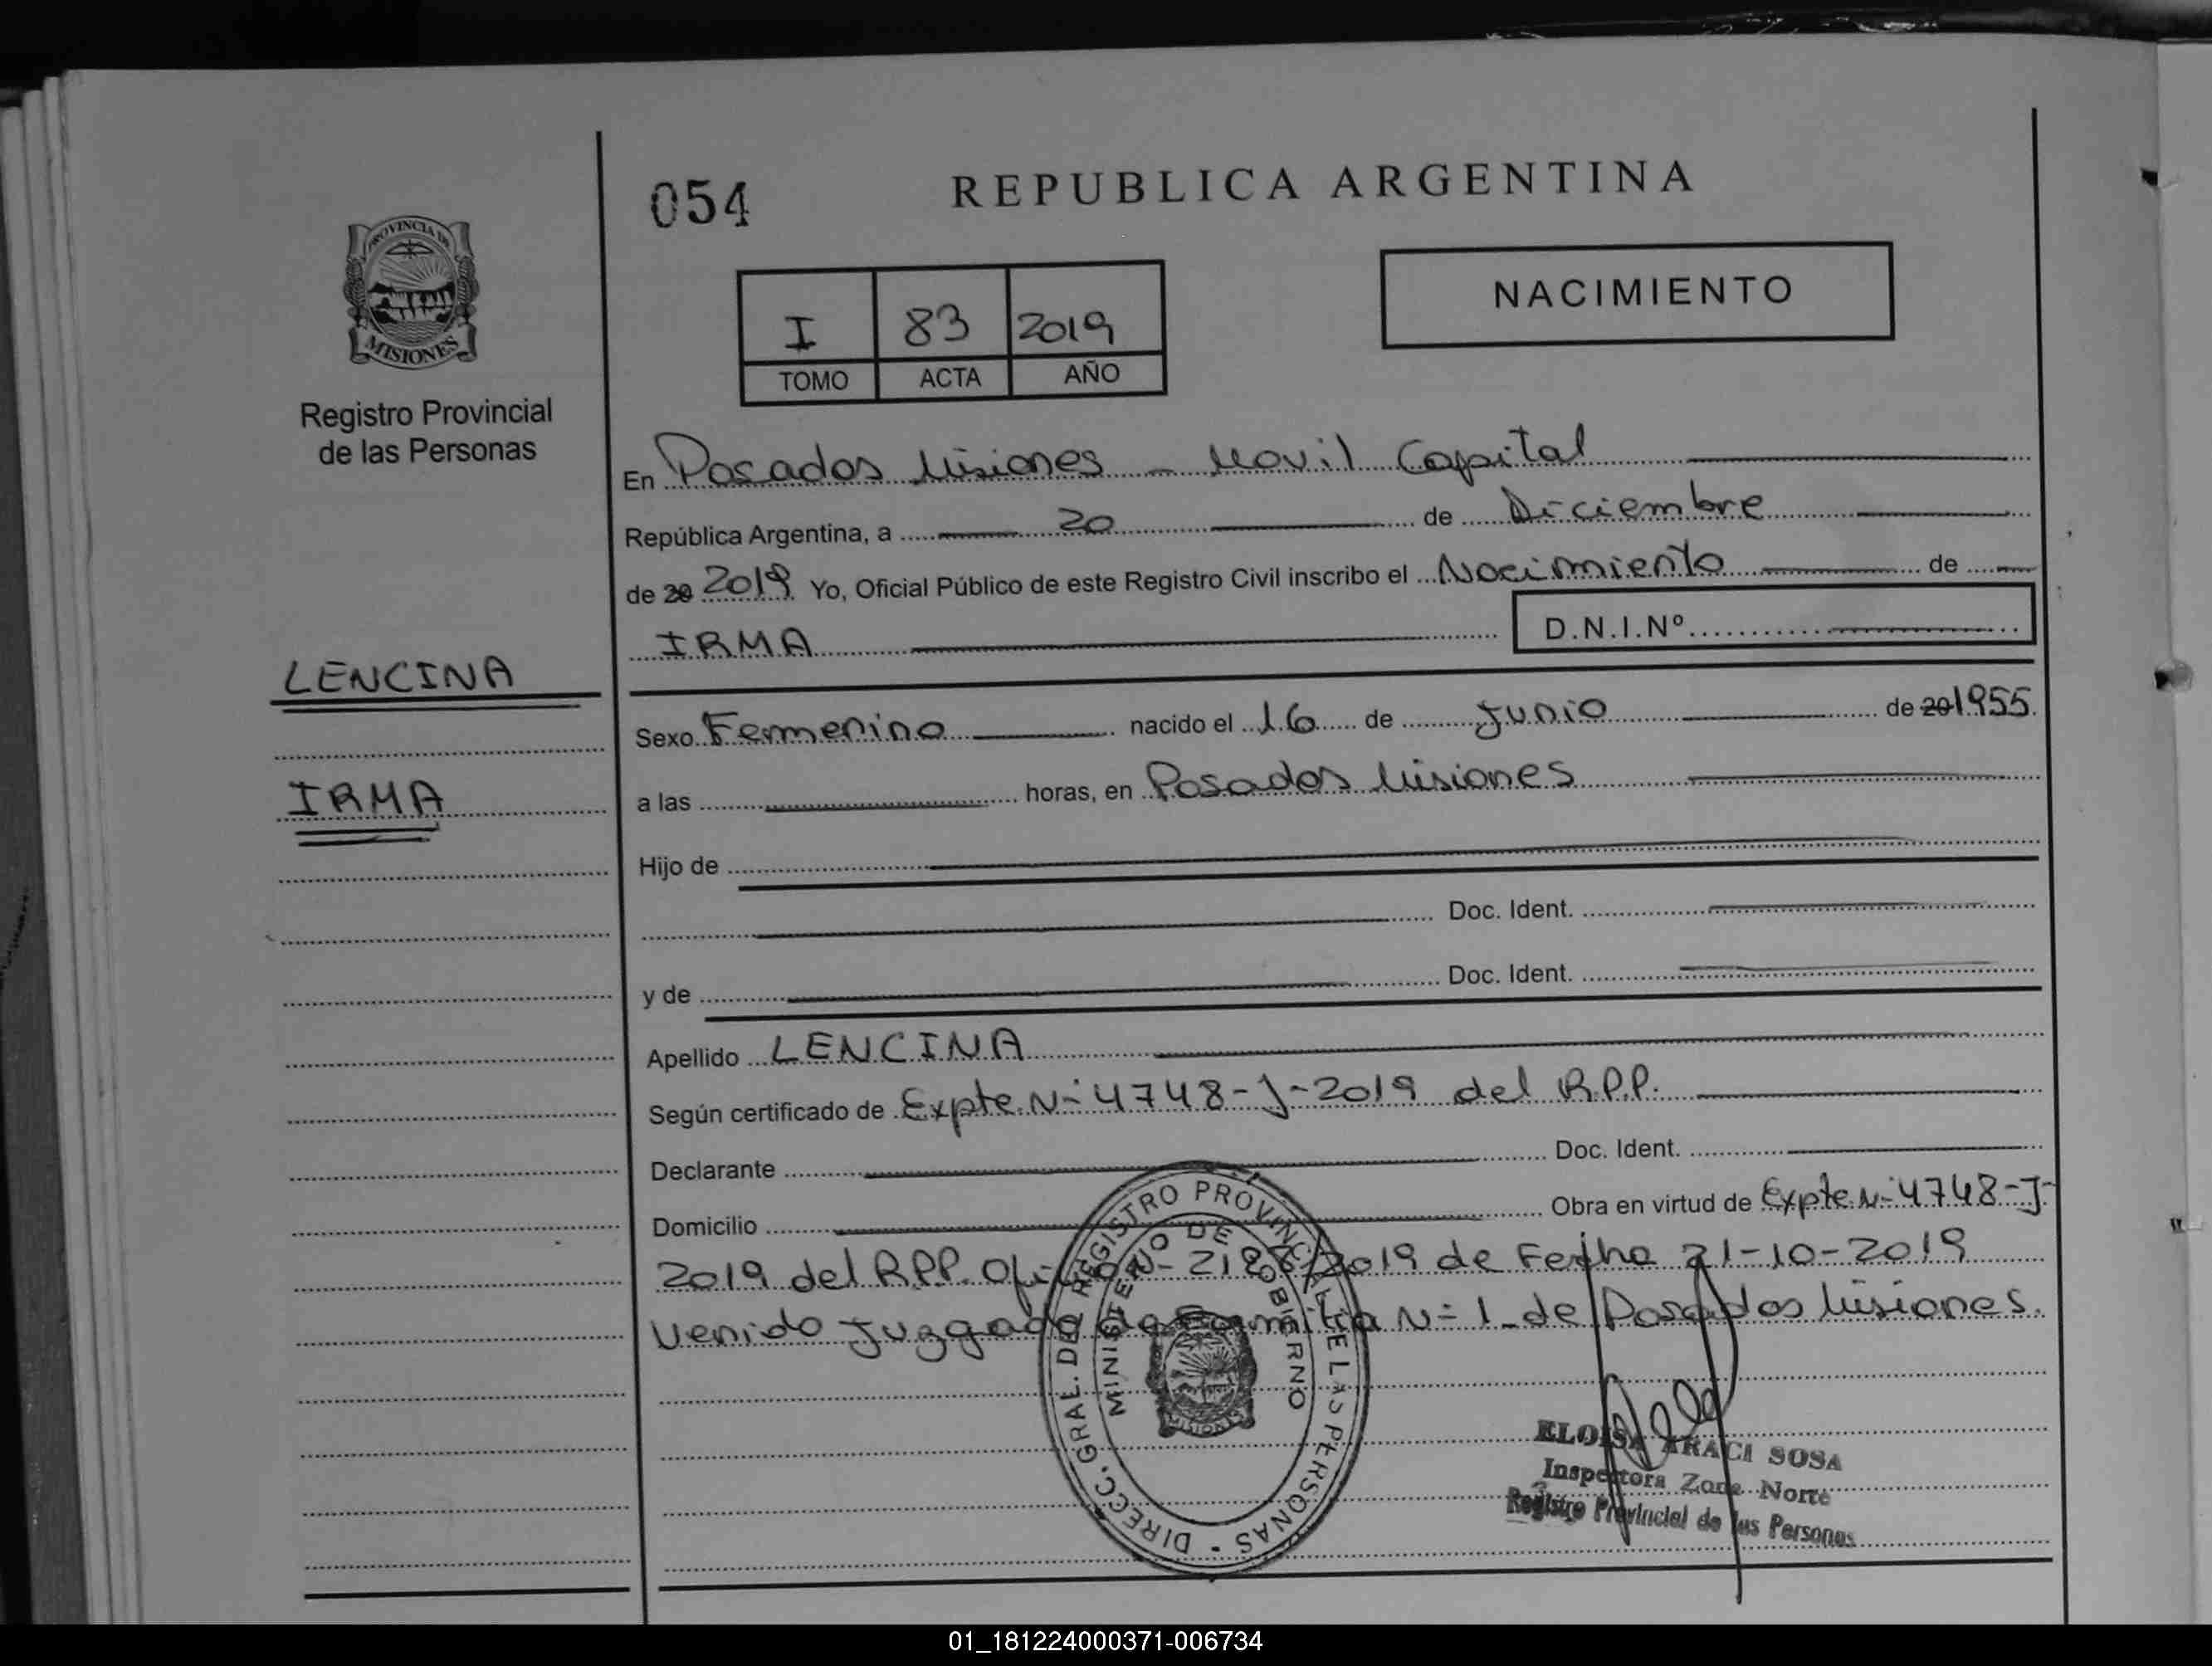 054
REPUBLICA ARGENTINA
PROVINCIA DE
MISIONES
I 83 2019
TOMO ACTA AÑO
NACIMIENTO
Registro Provincial
de las Personas
En Posadas Misiones - Movil Capital
República Argentina, a 20 de Diciembre
de 20 2019 Yo, Oficial Público de este Registro Civil inscribo el Nacimiento de
IRMA D.N.I.Nº
LENCINA
IRMA
Sexo Femenino nacido el 16 de Junio de 20 1955
a las horas, en Posadas Misiones
Hijo de
Doc. Ident.
y de Doc. Ident.
Apellido LENCINA
Según certificado de Expte. N- 4748-J-2019 del R.P.P.
Declarante Doc. Ident.
Domicilio Obra en virtud de Expte. N- 4748-J-
2019 del R.P.P. Oficio N- /2019 de Fecha 21-10-2019
venido Juzgado de Familia N- 1 - de Posadas Misiones.
DIRECC. GRAL. DEL REGISTRO PROVINCIAL DE LAS PERSONAS
MINISTERIO DE GOBIERNO
MISIONES
ELOISA ARACI SOSA
Inspectora Zona Norte
Registro Provincial de las Personas
01_181224000371-006734